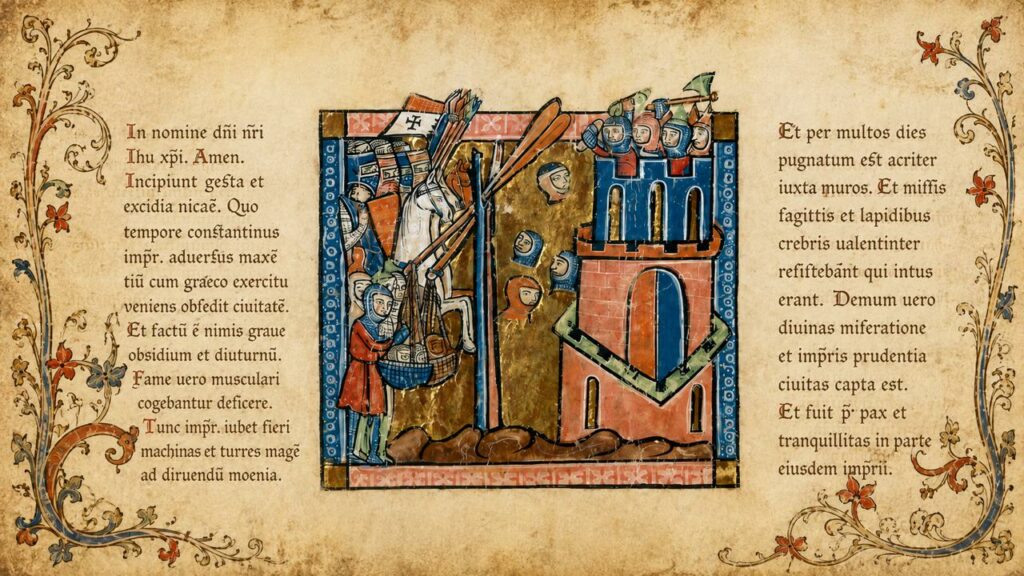 In nomine dñi ñri
Ihu xp̄i. Amen.
Incipiunt gesta et
excidia nicaē. Quo
tempore constantinus
imp̄r. aduersus maxē
tiū cum graeco exercitu
veniens obsedit ciuitatē.
Et factū ē nimis graue
obsidium et diuturnū.
Fame uero musculari
cogebantur deficere.
Tunc imp̄r. iubet fieri
machinas et turres magē
ad diruendū moenia.
Et per multos dies
pugnatum est acriter
iuxta muros. Et missis
fagittis et lapidibus
crebris ualentinter
resistebānt qui intus
erant. Demum uero
diuinas miseratione
et imp̄ris prudentia
ciuitas capta est.
Et fuit p̄ pax et
tranquillitas in parte
eiusdem imp̄rii.